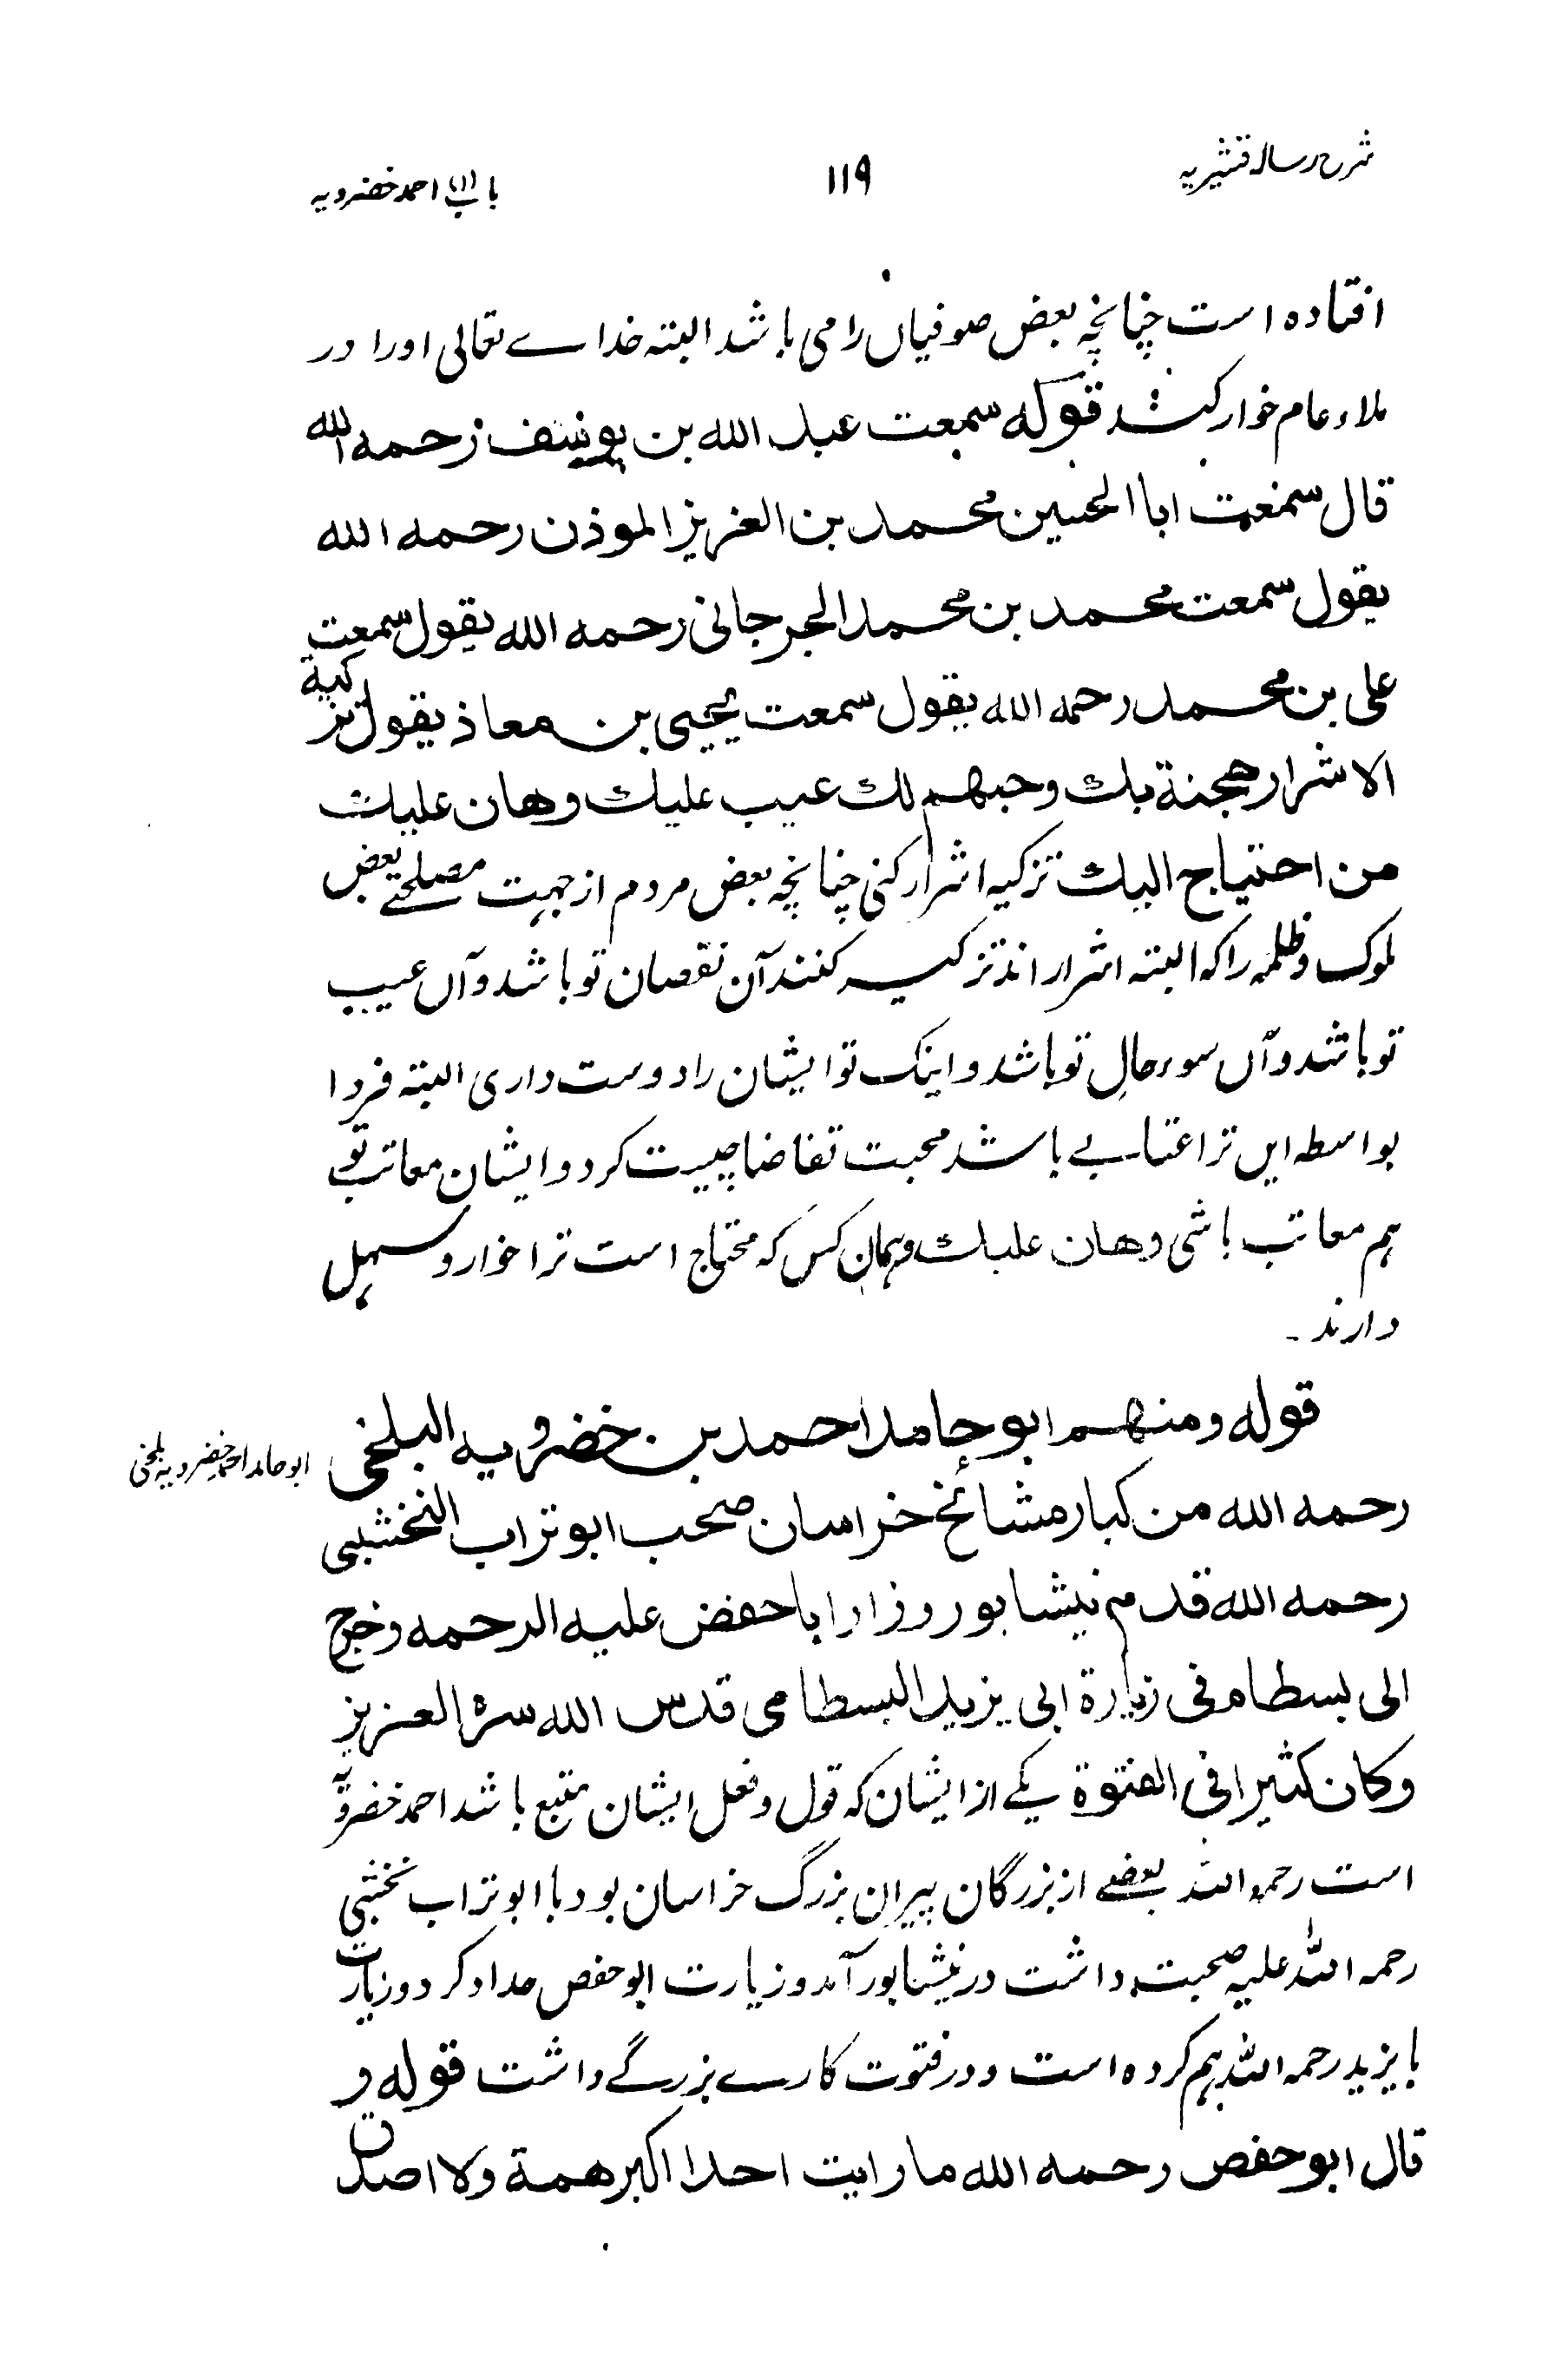 شرح رسالہ قشیریہ
۱۱۹
باب (۱) احمد خضرویہ
افتادہ است چنانچہ بعض صوفیاں را می باشد البتہ خداے تعالی اورا در
ملاء عام خوار کند قوله سمعت عبد الله بن یوسف رحمه الله
قال سمعت ابا الحسین محمد بن العزیز الموذن رحمه الله
یقول سمعت محمد بن محمد الجرجانی رحمه الله یقول سمعت
علی بن محمد رحمه الله یقول سمعت یحیی بن معاذ یقول تزکیة
الاشرار هجنة بك وحبهم لك عیب علیك وهان علیك
من احتیاج الیك تزکیہ اشرار کنی چنانچہ بعض مردم از جہت مصلحتے بعض
ملوک و ظلمہ را کہ البتہ اشرار اند تزکیہ کنند آن نقصان تو باشد و آں عیب
تو باشد و آں سوء حالِ تو باشد و اینک تو ایشان را دوست داری البتہ فردا
بواسطہ ایں ترا عتابے باشد محبت تقاضا چیست کرد و ایشان معاتب تو
ہم معاتب باشی وهان علیك وہمان کس کہ محتاج است ترا خوار و سہل
دارند ۔
قوله ومنهم ابو حامد احمد بن خضرویه البلخی
ابو حامد احمد خضرویہ بلخی
رحمه الله من کبار مشائخ خراسان صحب ابو تراب النخشبی
رحمه الله قدم نیشابور وزار ابا حفض علیه الرحمه وخرج
الی بسطام فی زیارة ابی یزید البسطامی قدس الله سره العزیز
وکان کثیرا فی الفتوة یکے از ایشان کہ قول و فعل ایشان متبع باشد احمد خضرویہ
است رحمہ اللہ بعضے از بزرگان پیران بزرگ خراسان بود با ابو تراب نخشبی
رحمہ اللہ علیہ صحبت داشت در نیشاپور آمد و زیارت ابو حفص حداد کرد و زیارت
بایزید رحمہ اللہ ہم کردہ است و در فتوت کارے بزرگے داشت قوله و
قال ابو حفص رحمه الله ما رایت احدا اکبر همة ولا اصدق